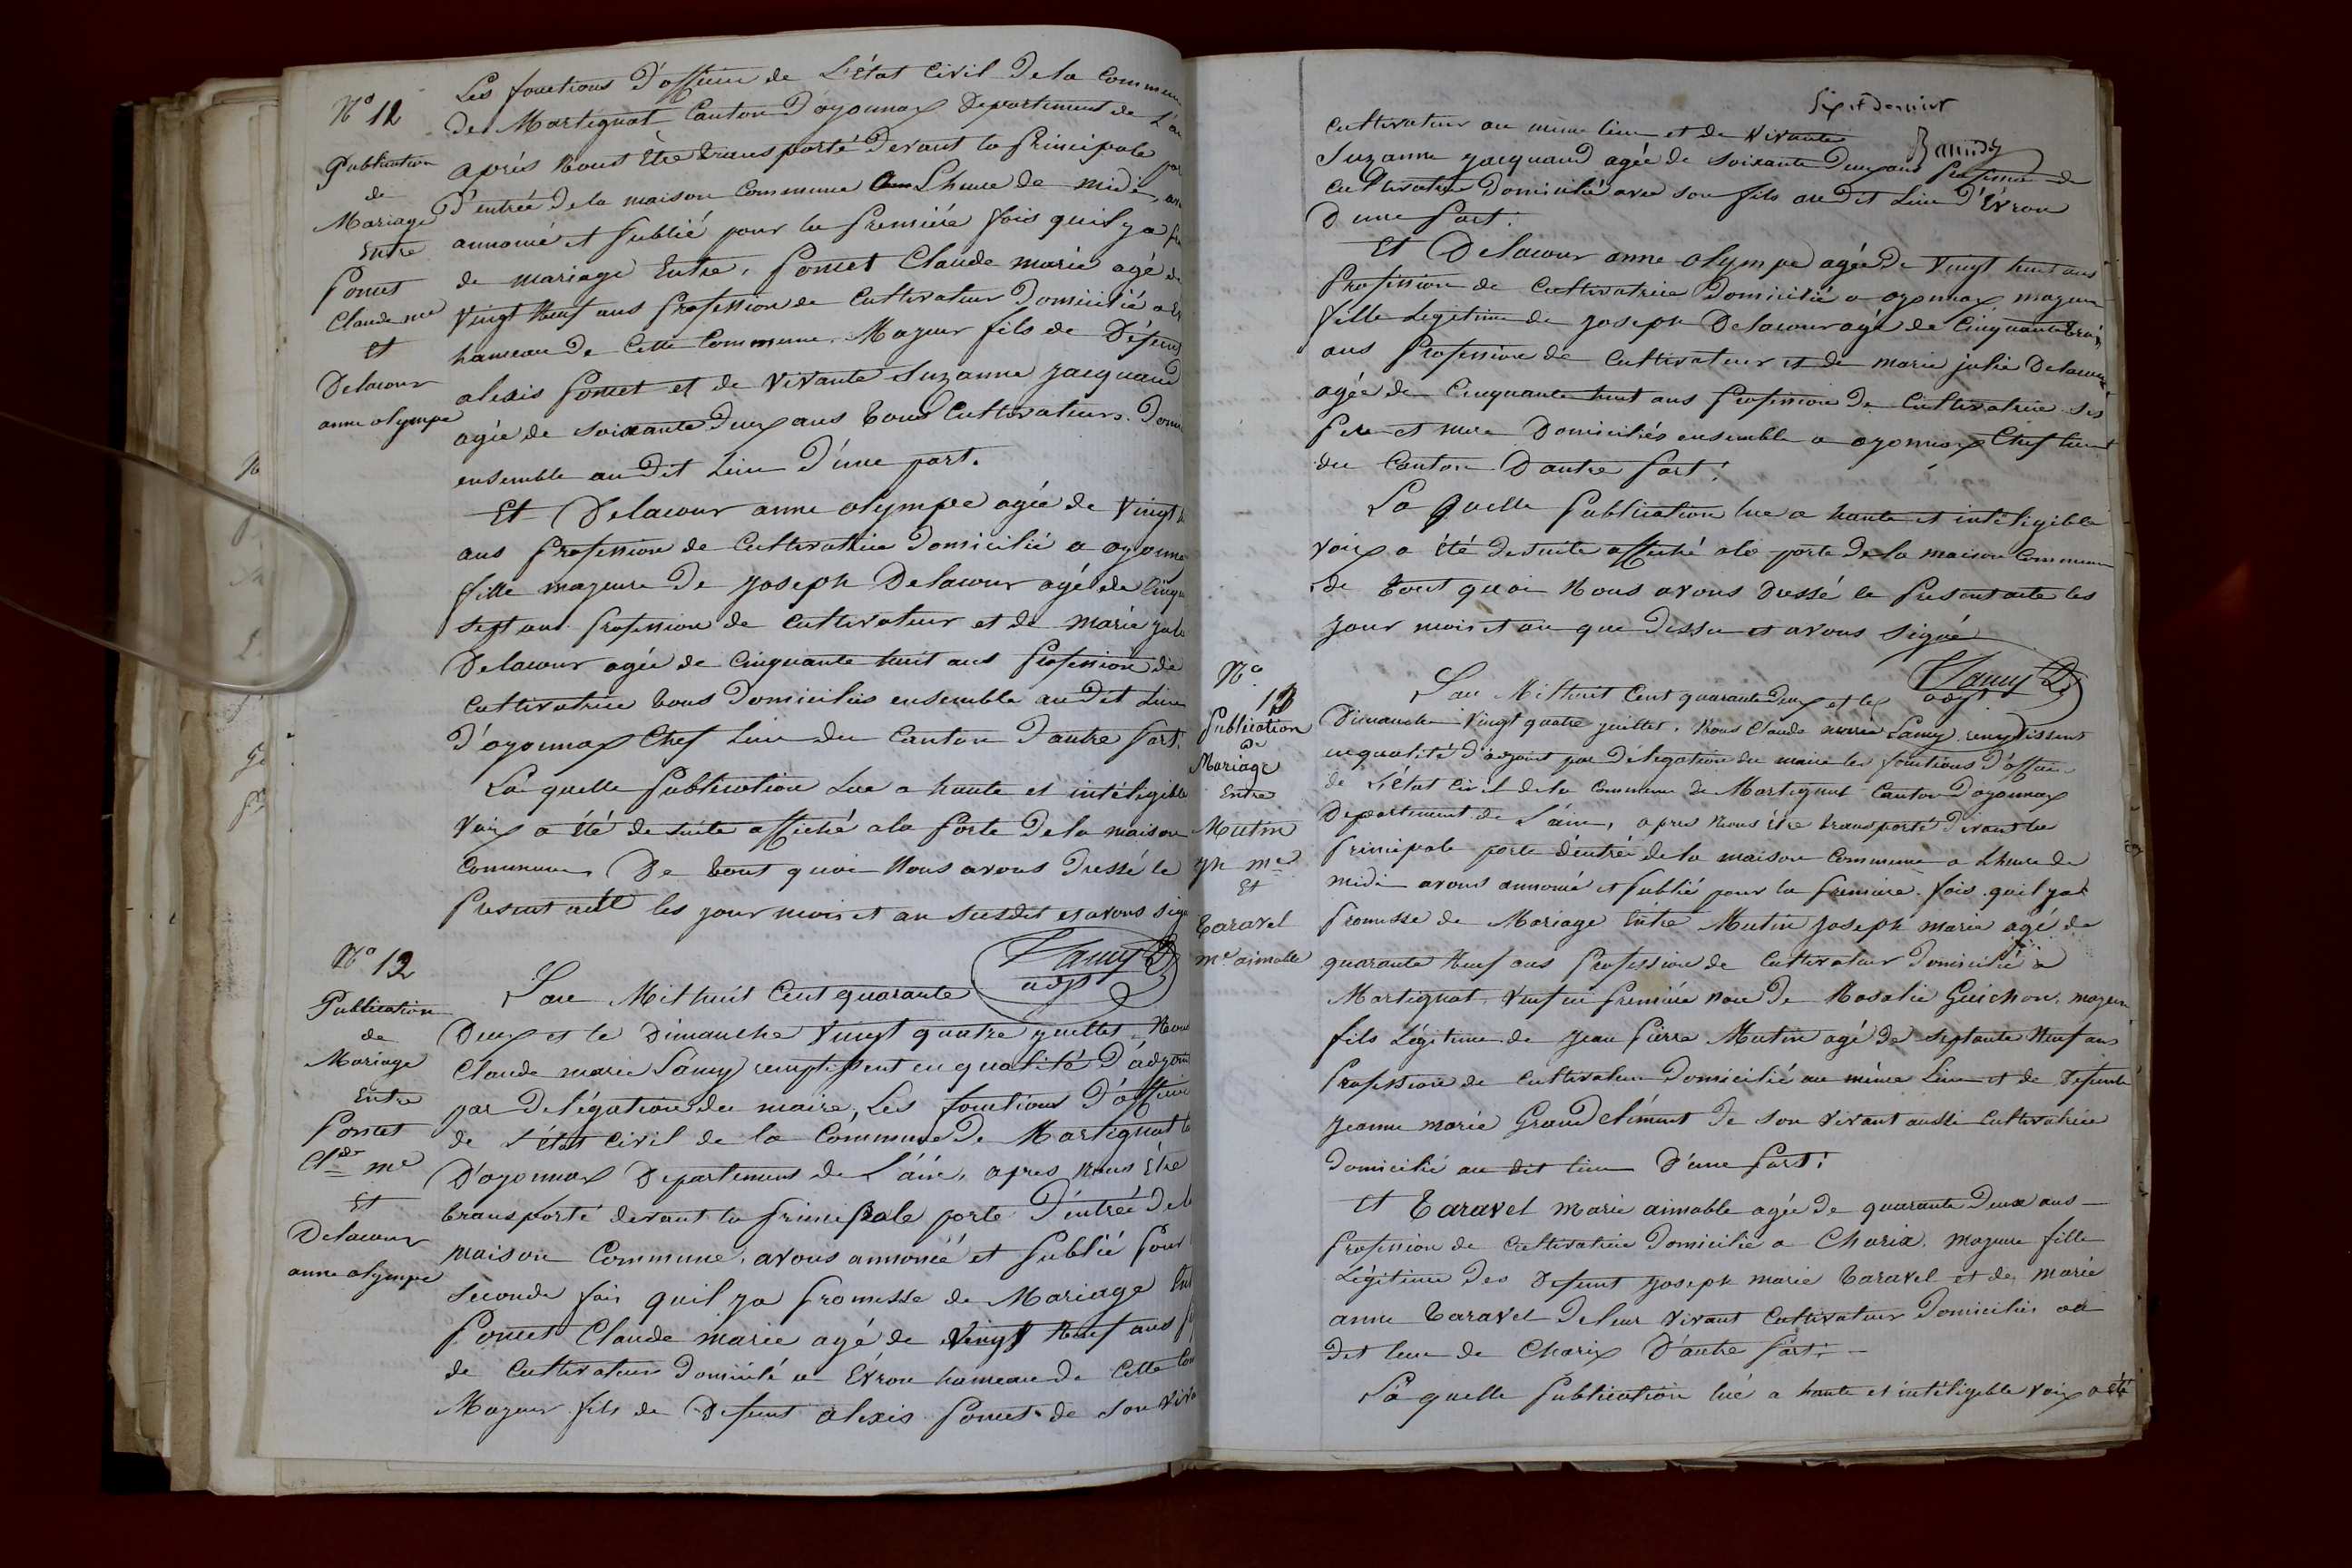 N° 12
Publication
de
Mariage
Entre
Poncet
Claude me
Et
Delacour
anne olympe
Les fonctions d'officier de L'état Civil de la Commune
de Martignat Canton d'oyonnax Departement de L'ain
après Nous Être transporté devant la Principale
d'entrée de la maison Commune a Lheure de midi
annoncé et Publié pour la Première fois quil ya
de mariage Entre, Poncet Claude marie agé de
Vingt Neuf ans Profession de Cultivateur domicilié a
hameau de Cette Commune, Majeur fils de Défunt
alexis Poncet et de Vivante Suzanne jacquand
agée de soixante deux ans tous Cultivateurs
ensemble audit Lieu d'une part.
Et Delacour anne olympe agée de Vingt
ans Profession de Cultivatrice domicilié a oyonnax
fille majeure de joseph Delacour agé de
sept ans profession de Cultivateur et de marie
Delacour agée de Cinquante huit ans Profession de
Cultivatrice tous domiciliés ensemble audit Lieu
d'oyonnax Chef Lieu du Canton d'autre Part.
La quelle Publication Lue a haute et intéligible
Voix a Été de suite affiché ala Porte de la maison
Commune, De tout quoi Nous avons dressé le
Present acte les jour mois et an susdit et avons
Lamy
adjt
N° 12
Publication
de
Mariage
Entre
Poncet
Clde me
Et
Delacour
anne olympe
Lan Mil huit Cent quarante
Deux et le Dimanche Vingt quatre juillet, Nous
Claude marie Lamy remplissent en qualité d'adjoint
par delégation du maire, Les fonctions d'officier
de L'état Civil de la Commune de Martignat
D'oyonnax Departement de L'ain, apres nous être
transporté devant la principale porte d'entrée de la
maison Commune, avons annoncé et Publié Pour
seconde fois quil ya Promesse de Mariage
Poncet Claude marie agé de Vingt Neuf ans
de Cultivateur domicilié a Évron hameau de Cette
Majeur fils de Defunt alexis Poncet de son
Six et dernier
cultivateur au même lieu et de Vivante
Suzanne jacquand agée de soixante Deux ans Profession de
Cultivatrice domicilié avec son fils audit Lieu d'Évron
D'une Part.
Et Delacour anne olympe agée de Vingt huit ans
Profession de Cultivatrice domicilié a oyonnax majeure
fille Légitime de joseph Delacour agé de Cinquante
ans Profession de Cultivateur et de marie julie Delacour
agée de Cinquante huit ans Profession de Cultivatrice ses
Pere et mere Domiciliés ensemble a oyonnax Chef lieu
du Canton D'autre Part.
La quelle Publication lue a haute et intéligible
voix a été de suite affiché ala porte de la maison Commune
de tout quoi Nous avons dressé le Present acte les
jour mois et an que dessu et avons signé
Lamy
adjt
N°
13
Publication
De
Mariage
Entre
Mutin
jh me
Et
Taravel
me aimable
Lan Mil huit Cent quarante Deux et le
Dimanche Vingt quatre juillet, Nous Claude marie Lamy remplissent
en qualité d'adjoint par délegation du maire les fonctions d'officier
de L'état Civil de la Commune de Martignat Canton d'oyonnax
Departement de L'ain, apres Nous être transporté devant la
Principale porte d'entrée de la maison Commune a Lheure de
midi avons annoncé et Publié pour la Premiere fois quil ya
Promesse de Mariage Entre Mutin joseph marie agé de
quarante Neuf ans Profession de Cultivateur domicilié a
Martignat, Veuf en Première Noce de Rosalie Guichon, majeur
fils Légitime de jean Pierre Mutin agé de septante Neuf ans
Profession de Cultivateur Domicilié au même Lieu et de Defunte
jeanne marie Grand clément de son Vivant aussi Cultivatrice
domicilié au dit lieu D'une Part.
Et Taravel marie aimable agée de quarante deux ans
Profession de Cultivatrice domicilié a Charix, majeure fille
Légitime des Defunt joseph marie Taravel et de marie
anne Taravel de leur vivant Cultivateur domiciliés au
dit lieu de Charix D'autre Part.
La quelle Publication lue a haute et intéligible Voix a été